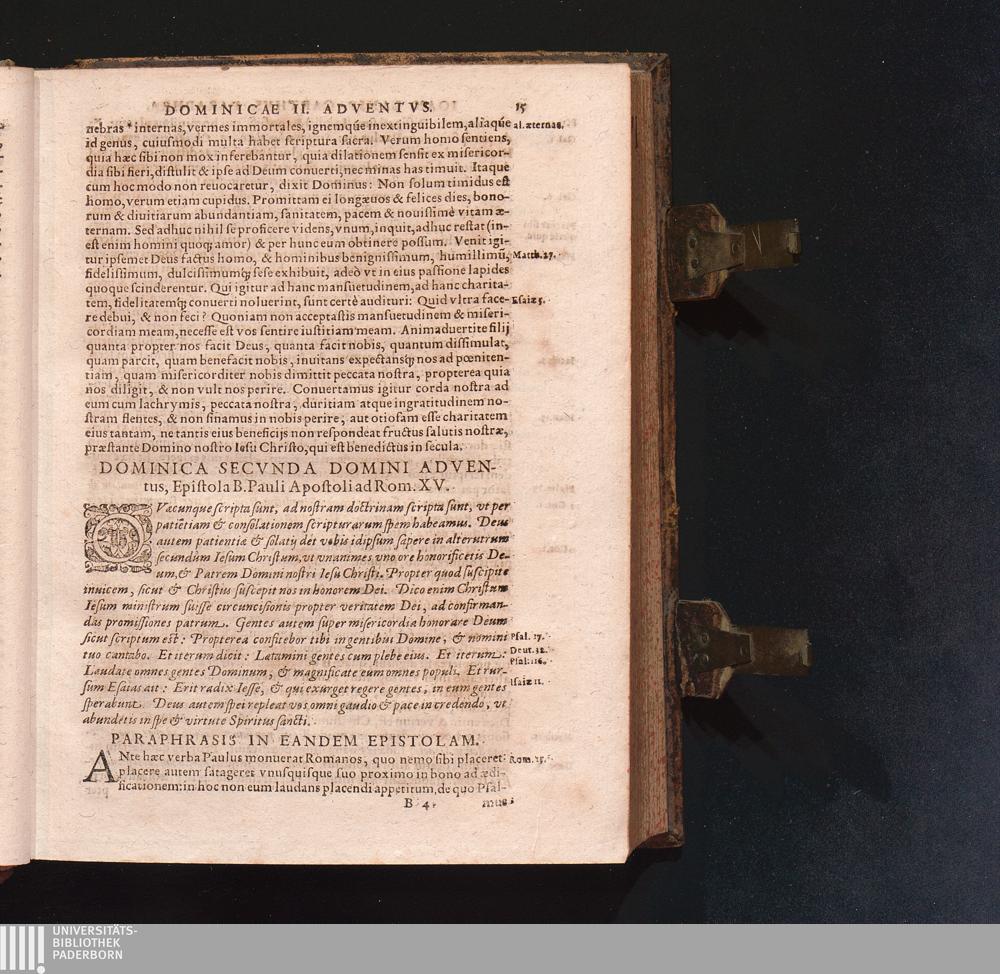 DOMINICAE II. ADVENTVS. 15
nebras * internas, vermes immortales, ignemqúe inextinguibilem, aliaqúe al. æternas.
id genus, cuiusmodi multa habet scriptura sacra. Verum homo sentiens,
quia hæc sibi non mox inferebantur, quia dilationem sensit ex misericor-
dia sibi fieri, distulit & ipse ad Deum conuerti, nec minas has timuit. Itaque
cum hoc modo non reuocaretur, dixit Dominus: Non solum timidus est
homo, verum etiam cupidus. Promittam ei longæuos & felices dies, bono-
rum & diuitiarum abundantiam, sanitatem, pacem & nouissimè vitam æ-
ternam. Sed adhuc nihil se proficere videns, vnum, inquit, adhuc restat (in-
est enim homini quoq; amor) & per hunc eum obtinere possum. Venit igi-
tur ipsemet Deus factus homo, & hominibus benignissimum, humillimũ, Matth. 27.
fidelissimum, dulcissimumq; sese exhibuit, adeò vt in eius passione lapides
quoque scinderentur. Qui igitur ad hanc mansuetudinem, ad hanc charita-
tem, fidelitatemq; conuerti noluerint, sunt certè audituri: Quid vltra face- Esaiæ 5.
re debui, & non feci? Quoniam non acceptastis mansuetudinem & miseri-
cordiam meam, necesse est vos sentire iustitiam meam. Animaduertite filij
quanta propter nos facit Deus, quanta facit nobis, quantum dissimulat,
quam parcit, quam benefacit nobis, inuitans expectansq; nos ad pœniten-
tiam, quam misericorditer nobis dimittit peccata nostra, propterea quia
nos diligit, & non vult nos perire. Conuertamus igitur corda nostra ad
eum cum lachrymis, peccata nostra, duritiam atque ingratitudinem no-
stram flentes, & non sinamus in nobis perire, aut otiosam esse charitatem
eius tantam, ne tantis eius beneficijs non respondeat fructus salutis nostræ,
præstante Domino nostro Iesu Christo, qui est benedictus in secula.
DOMINICA SECVNDA DOMINI ADVEN-
tus, Epistola B. Pauli Apostoli ad Rom. XV.
QVacunque scripta sunt, ad nostram doctrinam scripta sunt, vt per
patiẽtiam & consolationem scripturarum spem habeamus. Deus
autem patientiæ & solatij det vobis idipsum sapere in alterutrum
secundùm Iesum Christum, vt vnanimes vno ore honorificetis De-
um, & Patrem Domini nostri Iesu Christi. Propter quod suscipite
inuicem, sicut & Christus suscepit nos in honorem Dei. Dico enim Christum
Iesum ministrum fuisse circuncisionis propter veritatem Dei, ad confirman-
das promissiones patrum. Gentes autem super misericordia honorare Deum
sicut scriptum est: Propterea confitebor tibi in gentibus Domine, & nomini Psal. 17.
tuo cantabo. Et iterum dicit: Lætamini gentes cum plebe eius. Et iterum: Deut. 32.
Laudate omnes gentes Dominum, & magnificate eum omnes populi. Et rur- Psal. 116.
sum Esaias ait: Erit radix Iesse, & qui exurget regere gentes, in eum gentes Isaiæ 11.
sperabunt. Deus autem spei repleat vos omni gaudio & pace in credendo, vt
abundetis in spe & virtute Spiritus sancti.
PARAPHRASIS IN EANDEM EPISTOLAM.
ANte hæc verba Paulus monuerat Romanos, quo nemo sibi placeret: Rom. 15.
placere autem satageret vnusquisque suo proximo in bono ad ædi-
ficationem: in hoc non eum laudans placendi appetitum, de quo Psal-
B 4 mus
UNIVERSITÄTS-
BIBLIOTHEK
PADERBORN